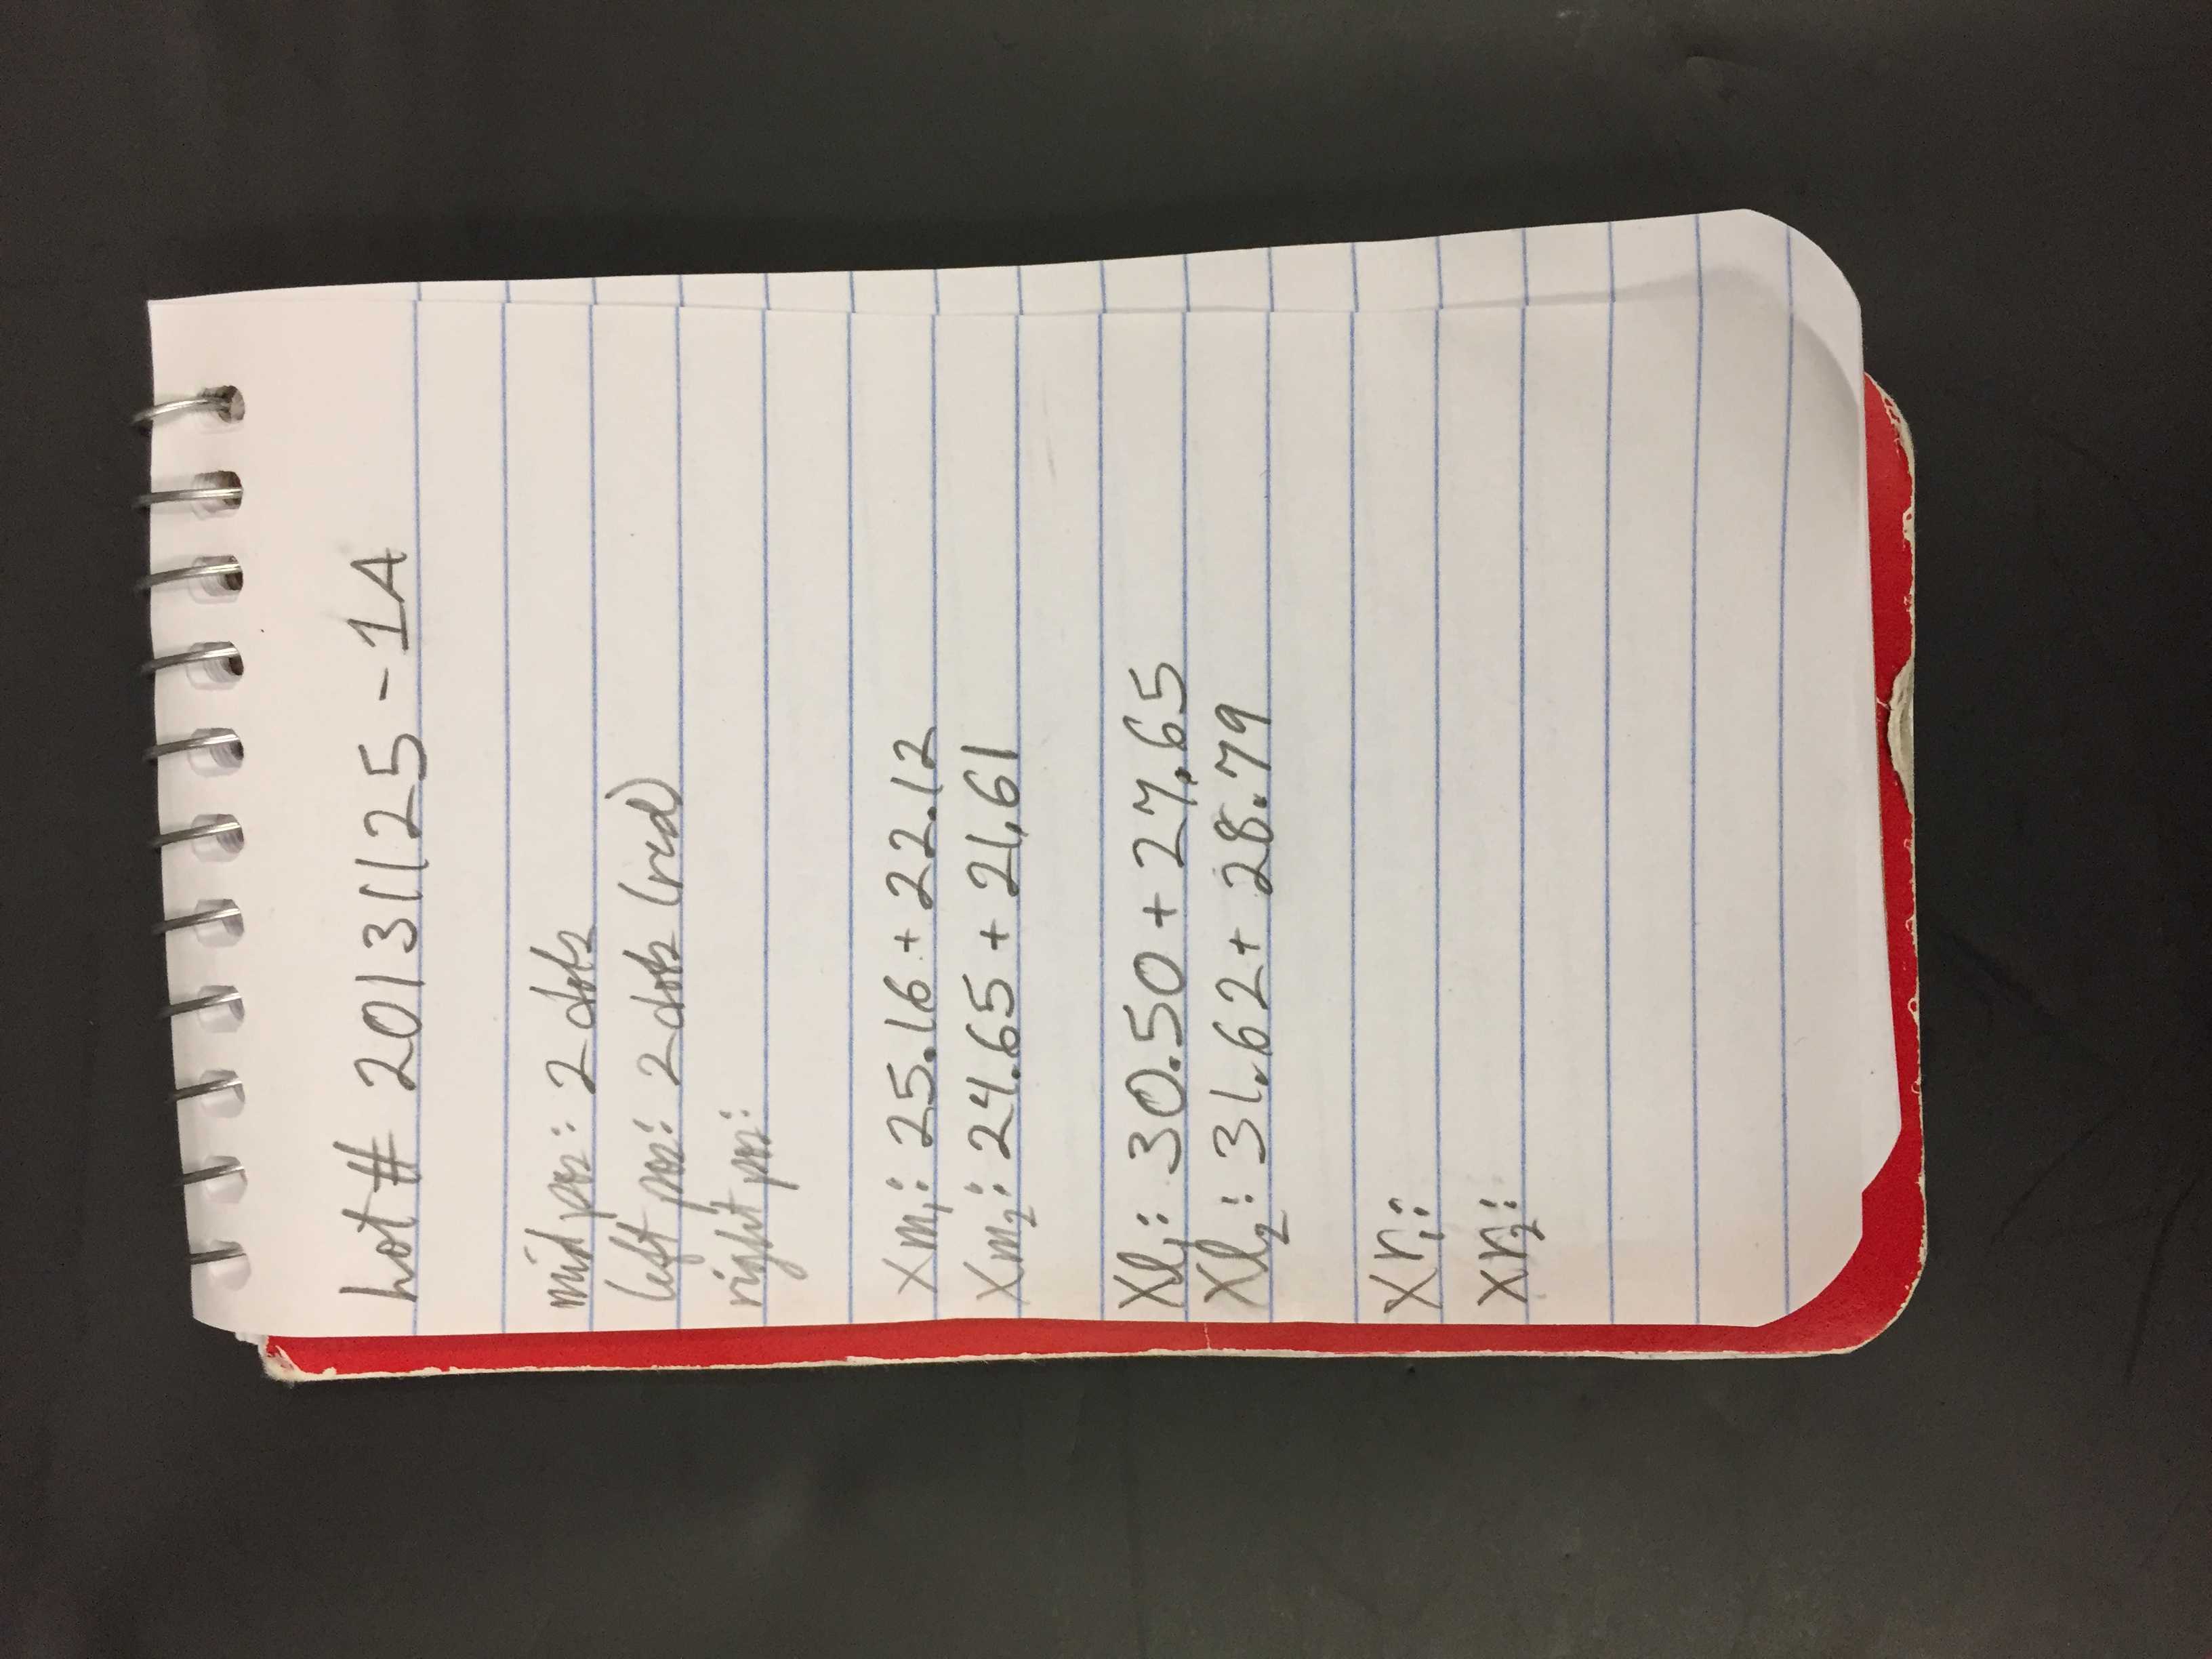 Lot # 20131125-1A
mid pos: 2 dots
left pos: 2 dots (red)
right pos:
Xm₁: 25.16 + 22.12
Xm₂: 24.65 + 21.61
Xl₁: 30.50 + 27.65
Xl₂: 31.62 + 28.79
Xr₁:
Xr₂: